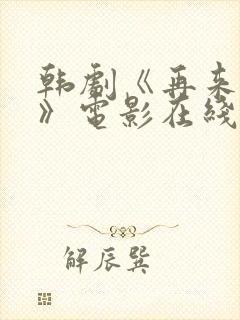 韩剧《再来
》电影在线
解辰巽